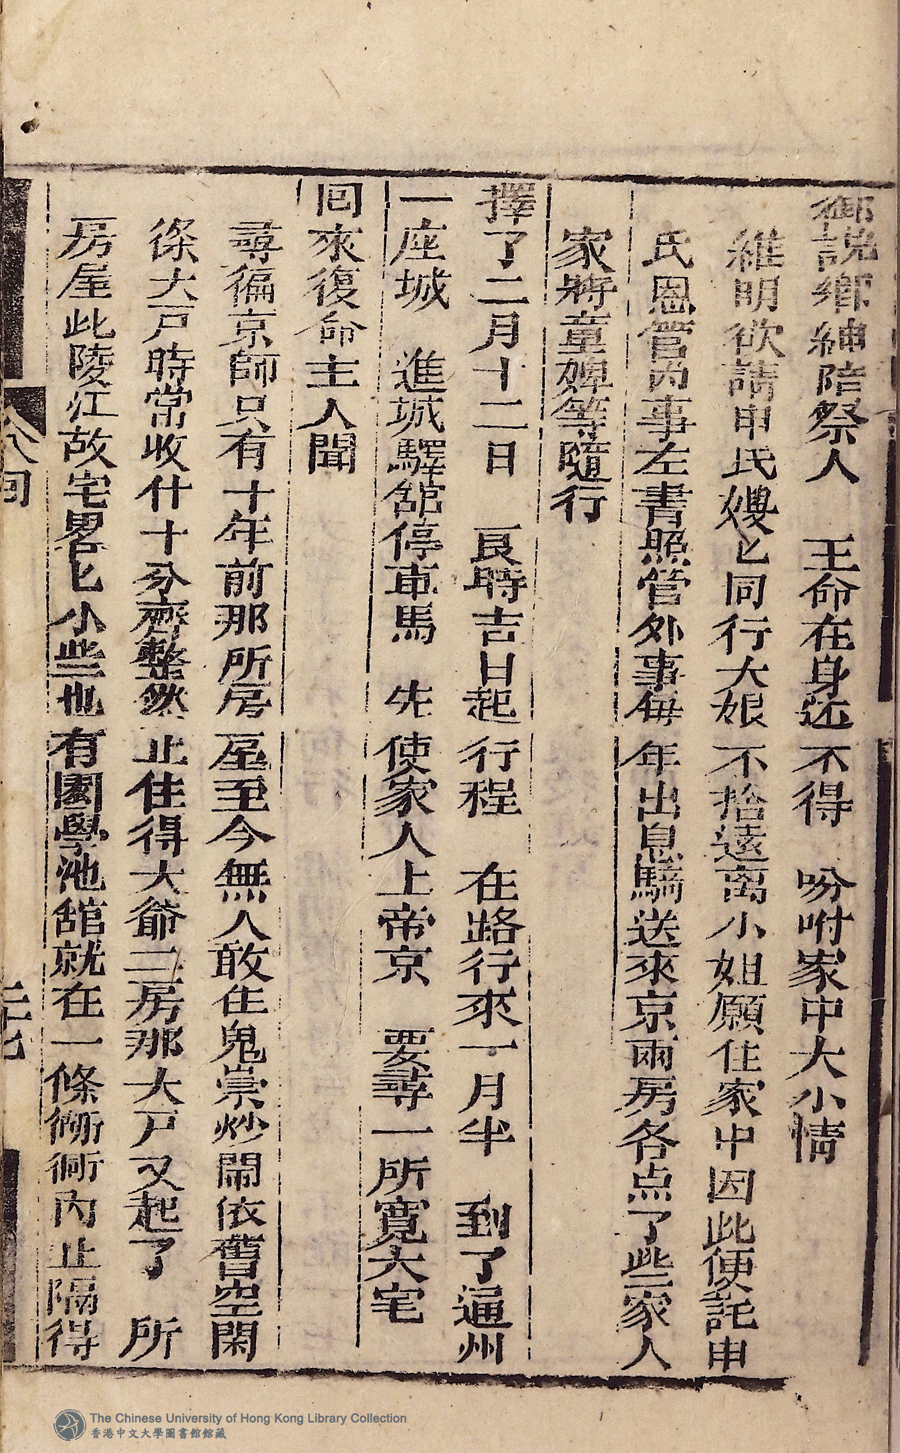 御說鄉紳陪祭人　王命在身还不得　吩咐家中大小情
維明欲請申氏嫂匕同行大娘不捨遠离小姐願住家中因此便託申
氏恩管內事左書照管外事每年出息驕送來京兩房各点了些家人
家將童婢等隨行
擇了二月十二日　良時吉日起行程　在路行來一月半　到了通州
一座城　進城驛舘停車馬　先使家人上帝京　要尋一所寬大宅
囘來復命主人聞
尋徧京師只有十年前那所房屋至今無人敢住鬼祟炒鬧依舊空閑
後大戸時常收什十分齊整然止住得大爺二房那大戸又起了　所
房屋此陵江故宅畧匕小些也有園學池舘就在一條衚衕內止隔得
八囘
二七
The Chinese University of Hong Kong Library Collection
香港中文大學圖書館館藏